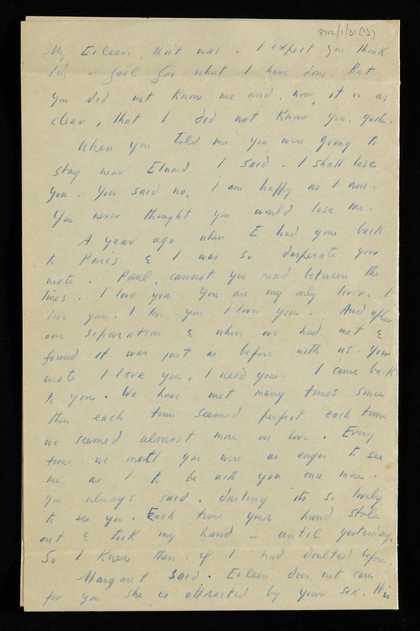 My Eileen that was. I expect you think
for what I have done. But
you did not know me and now, it is as
clear, that I did not know you, quite.
When you told me you were going to
stay near I said. I shall lose
you. You said no, I am happy as I am.
You never thought you would lose me.
A year ago when I had gone back
to Paris & I was so desperate you
wrote. Paul, cannot you read between the
lines. I love you. You are my only lover. I
love you. I love you I love you. And after
our separation & when we had met &
found it was just as before with us. You
wrote I love you, I need you. I came back
to you. We have met many times since
then each time seemed perfect each time
we seemed almost more in love. Every
time we met you were as eager to see
me as I to be with you once more.
You always said. darling its so lovely
to see you. Each time your hand stole
out & took my hand - until yesterday.
So I knew then if I had doubted before.
Margaret said. Eileen does not care
for you she is attracted by your sex. His